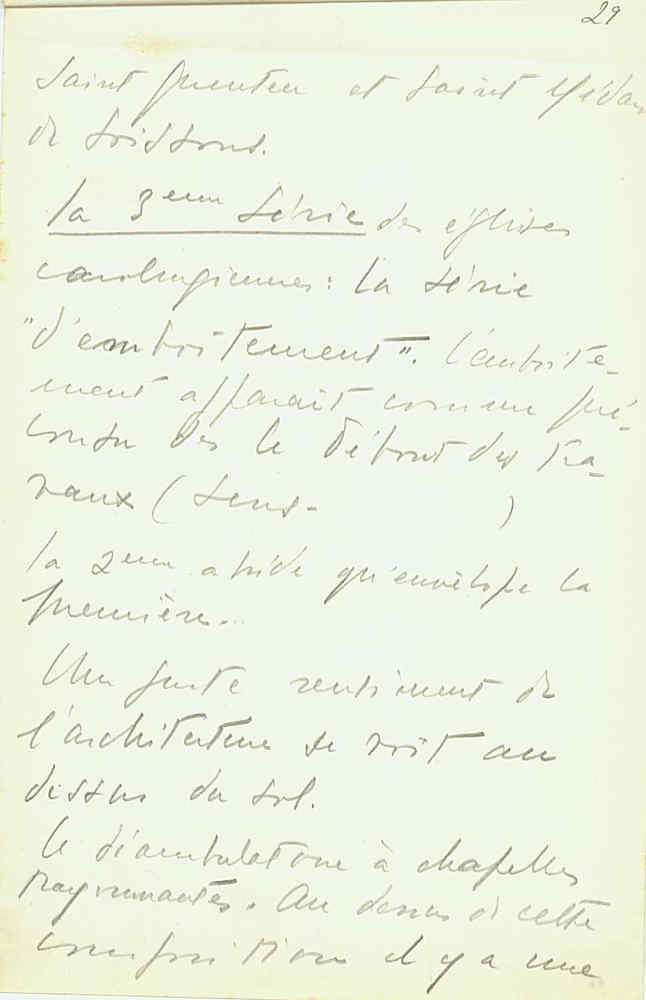 29
Saint Quentin et Saint Médard
de Soissons.
la 3eme Série des églises
carolingiennes : La série
"d'emboîtement". l'emboîte-
ment apparait comme pré-
conçu dès le début des tra-
vaux ( Sens- )
la 2eme abside qu'envelope la
première.
Un juste sentiment de
l'architecture se voit au
dessus du sol.
le déambulatoire à chapelles
rayonnantes. Au dessus de cette
composition il y a une